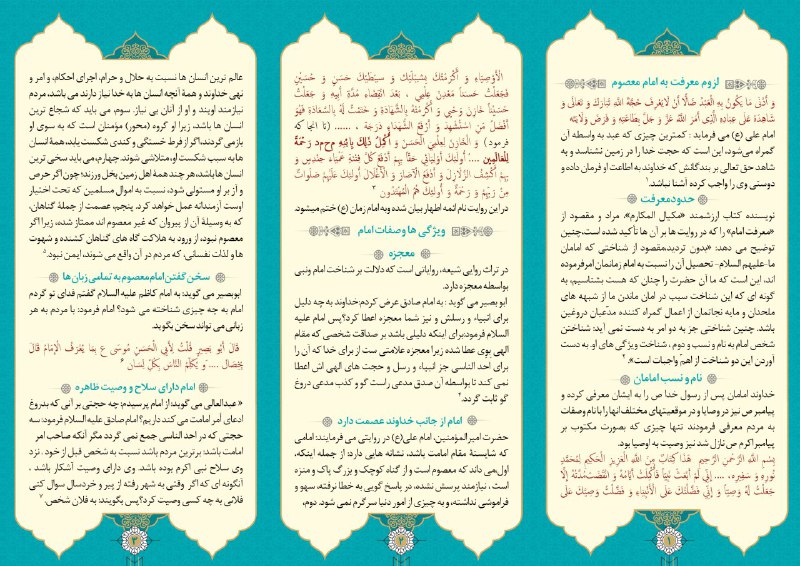 لزوم معرفت به امام معصوم
وَ أَدْنَى مَا يَكُونُ بِهِ الْعَبْدُ ضَالًّا أَنْ لَا يَعْرِفَ حُجَّةَ اللَّهِ تَبَارَكَ وَ تَعَالَى وَ
شَاهِدَهُ عَلَى عِبَادِهِ الَّذِي أَمَرَ اللَّهُ عَزَّ وَ جَلَّ بِطَاعَتِهِ وَ فَرَضَ وَلَايَتَهُ
امام علی (ع) می فرماید : کمترین چیزی که عبد به واسطه آن
گمراه می‌شود، این است که حجت خدا را در زمین نشناسد و به
شاهد حق تعالی بر بندگانش که خداوند به اطاعت او فرمان داده و
دوستی وی را واجب کرده آشنا نباشد.۱
حدود معرفت
نویسنده کتاب ارزشمند «مکیال المکارم»، مراد و مقصود از
«معرفت امام» را که در روایت ها بر آن ها تأکید شده است، چنین
توضیح می دهد: «بدون تردید، مقصود از شناختی که امامان
ما-علیهم السلام- تحصیل آن را نسبت به امام زمانمان امر فرموده
اند، این است که ما آن حضرت را چنان که هست بشناسیم، به
گونه ای که این شناخت سبب در امان ماندن ما از شبهه های
ملحدان و مایه نجاتمان از اعمال گمراه کننده مدّعیان دروغین
باشد. چنین شناختی جز به دو امر به دست نمی آید: شناختن
شخص امام به نام و نسب و دوم ، شناخت ویژگی های او. به دست
آوردن این دو شناخت از اهمّ واجبات است.»۲
نام و نسب امامان
خداوند امامان پس از رسول خدا ص را به ایشان معرفی کرده و
پیامبر ص نیز در وصایا و در موقعیتهای مختلف انها را با نام وصفات
به مردم معرفی فرمودند تنها چیزی که بصورت مکتوب بر
پیامبر اکرم ص نازل شد نیز وصیت به اوصیا بود.
بِسْمِ اللَّهِ الرَّحْمَنِ الرَّحِيمِ هَذَا كِتَابٌ مِنَ اللَّهِ الْعَزِيزِ الْحَكِيمِ لِمُحَمَّدٍ
نُورِهِ وَ سَفِيرِهِ، .... إِنِّي لَمْ أَبْعَثْ نَبِيّاً فَأُكْمِلَتْ أَيَّامُهُ وَ انْقَضَتْ مُدَّتُهُ إِلَّا
جَعَلْتُ لَهُ وَصِيّاً وَ إِنِّي فَضَّلْتُكَ عَلَى الْأَنْبِيَاءِ وَ فَضَّلْتُ وَصِيَّكَ عَلَى
۱
الْأَوْصِيَاءِ وَ أَكْرَمْتُكَ بِشِبْلَيْكَ وَ سِبْطَيْكَ حَسَنٍ وَ حُسَيْنٍ
فَجَعَلْتُ حَسَناً مَعْدِنَ عِلْمِي ، بَعْدَ انْقِضَاءِ مُدَّةِ أَبِيهِ وَ جَعَلْتُ
حُسَيْناً خَازِنَ وَحْيِي وَ أَكْرَمْتُهُ بِالشَّهَادَةِ وَ خَتَمْتُ لَهُ بِالسَّعَادَةِ فَهُوَ
أَفْضَلُ مَنِ اسْتُشْهِدَ وَ أَرْفَعُ الشُّهَدَاءِ دَرَجَةً ، ...... (تا انجا که
فرمود) وَ الْخَازِنَ لِعِلْمِيَ الْحَسَنَ وَ أُكْمِلُ ذَلِكَ بِابْنِهِ م‌ح‌م‌د رَحْمَةً
لِلْعَالَمِينَ ...: أُولَئِكَ أَوْلِيَائِي حَقّاً بِهِمْ أَدْفَعُ كُلَّ فِتْنَةٍ عَمْيَاءَ حِنْدِسٍ وَ
بِهِمْ أَكْشِفُ الزَّلَازِلَ وَ أَدْفَعُ الْآصَارَ وَ الْأَغْلَالَ أُولَئِكَ عَلَيْهِمْ صَلَوَاتٌ
مِنْ رَبِّهِمْ وَ رَحْمَةٌ وَ أُولَئِكَ هُمُ الْمُهْتَدُونَ ۳
در این روایت نام ائمه اطهار بیان شده وبه امام زمان (ع) ختم میشود.
ویژگی ها وصفات امام
معجزه
در تراث روایی شیعه، روایاتی است که دلالت بر شناخت امام ونبی
بواسطه معجزه دارد.
ابو بصیر می گوید : به امام صادق عرض کردم:خداوند به چه دلیل
برای انبیاء و رسلش و نیز شما معجزه اعطا کرد؟پس امام علیه
السلام فرمود:برای اینکه دلیلی باشد بر صداقت شخصی که مقام
الهی بوی عطا شده زیرا معجزه علامتی ست از برای خدا که آن را
برای احد الناسی جز انبیاء و رسل و حجت های الهی اش اعطا
نمی کند تا بواسطه آن صدق مدعی راست گو و کذب مدعی دروغ
گو ثابت گردد.۴
امام از جانب خداوند عصمت دارد
حضرت امیرالمؤمنین، امام علی(ع) در روایتی می فرمایند: امامی
که شایستهٔ مقام امامت باشد، نشانه هایی دارد: از جمله اینکه،
اول،می داند که معصوم است و از گناه کوچک و بزرگ پاک و منزه
است ، نیازمند پرسش نشده، در پاسخ گویی به خطا نرفته، سهو و
فراموشی نداشته، و به چیزی از امور دنیا سرگرم نمی شود. دوم،
۲
عالم ترین انسان ها نسبت به حلال و حرام، اجرای احکام، و امر و
نهی خداوند و همهٔ آنچه انسان ها به خدا نیاز دارند می باشد، مردم
نیازمند اویند و او از آنان بی نیاز. سوم، می باید که شجاع ترین
انسان ها باشد، زیرا او گروه (محور) مؤمنان است که به سوی او
باز می گردند، اگر از فرط خستگی و کندی شکست یابد، همهٔ انسان
ها به سبب شکست او، متلاشی شوند. چهارم، می باید سخی ترین
انسان ها باشد، هر چند همهٔ اهل زمین بخل ورزند؛ چون اگر حرص
و آز بر او مستولی شود، نسبت به اموال مسلمین که تحت اختیار
اوست آزمندانه عمل خواهد کرد. پنجم، عصمت از جملهٔ گناهان،
که به وسیلهٔ آن از پیروان که غیر معصوم اند ممتاز شده، زیرا اگر
معصوم نبود، از ورود به هلاکت گاه های گناهان کشنده و شهوت
ها و لذات نفسانی، که مردم در آن واقع می شوند، ایمن نبود.۵
سخن گفتن امام معصوم به تمامی زبان ها
ابوبصیر می گوید: به امام کاظم علیه السلام گفتم فدای تو گردم
امام به چه چیزی شناخته می شود؟ امام فرمود: با مردم به هر
زبانی می تواند سخن بگوید.
قَالَ أَبُو بَصِيرٍ قُلْتُ لِأَبِي الْحَسَنِ مُوسَى ع بِمَا يُعْرَفُ الْإِمَامُ قَالَ
بِخِصَالٍ .... وَ يُكَلِّمُ النَّاسَ بِكُلِّ لِسَانٍ ۶
امام دارای سلاح و وصیت ظاهره
« عبدالعالی می گوید: از امام پرسیدم: چه حجتی بر آنی که بدروغ
ادعای أمر امامت می کند داریم؟ امام صادق علیه السلام فرمود: سه
حجتی که در احد الناسی جمع نمی گردد مگر آنکه صاحب امر
امامت باشد: برترین مردم باشد نسبت به شخص قبل از خود . نزد
وی سلاح نبی اکرم بوده باشد. وی دارای وصیت آشکار باشد ،
آنگونه ای که اگر وقتی به شهر رفته از پیر و خردسال سوال کنی
فلانی به چه کسی وصیت کرد؟ پس بگویند: به فلان شخص.۷
۳